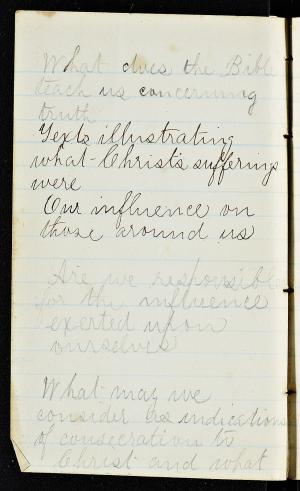 What does the Bible
teach us concerning
truth
Texts illustrating
what Christs sufferings
were
Our influence on
those around us
Are we responsible
for the influence
exerted upon
ourselves
What may we
consider as indications
of consecration to
Christ and what